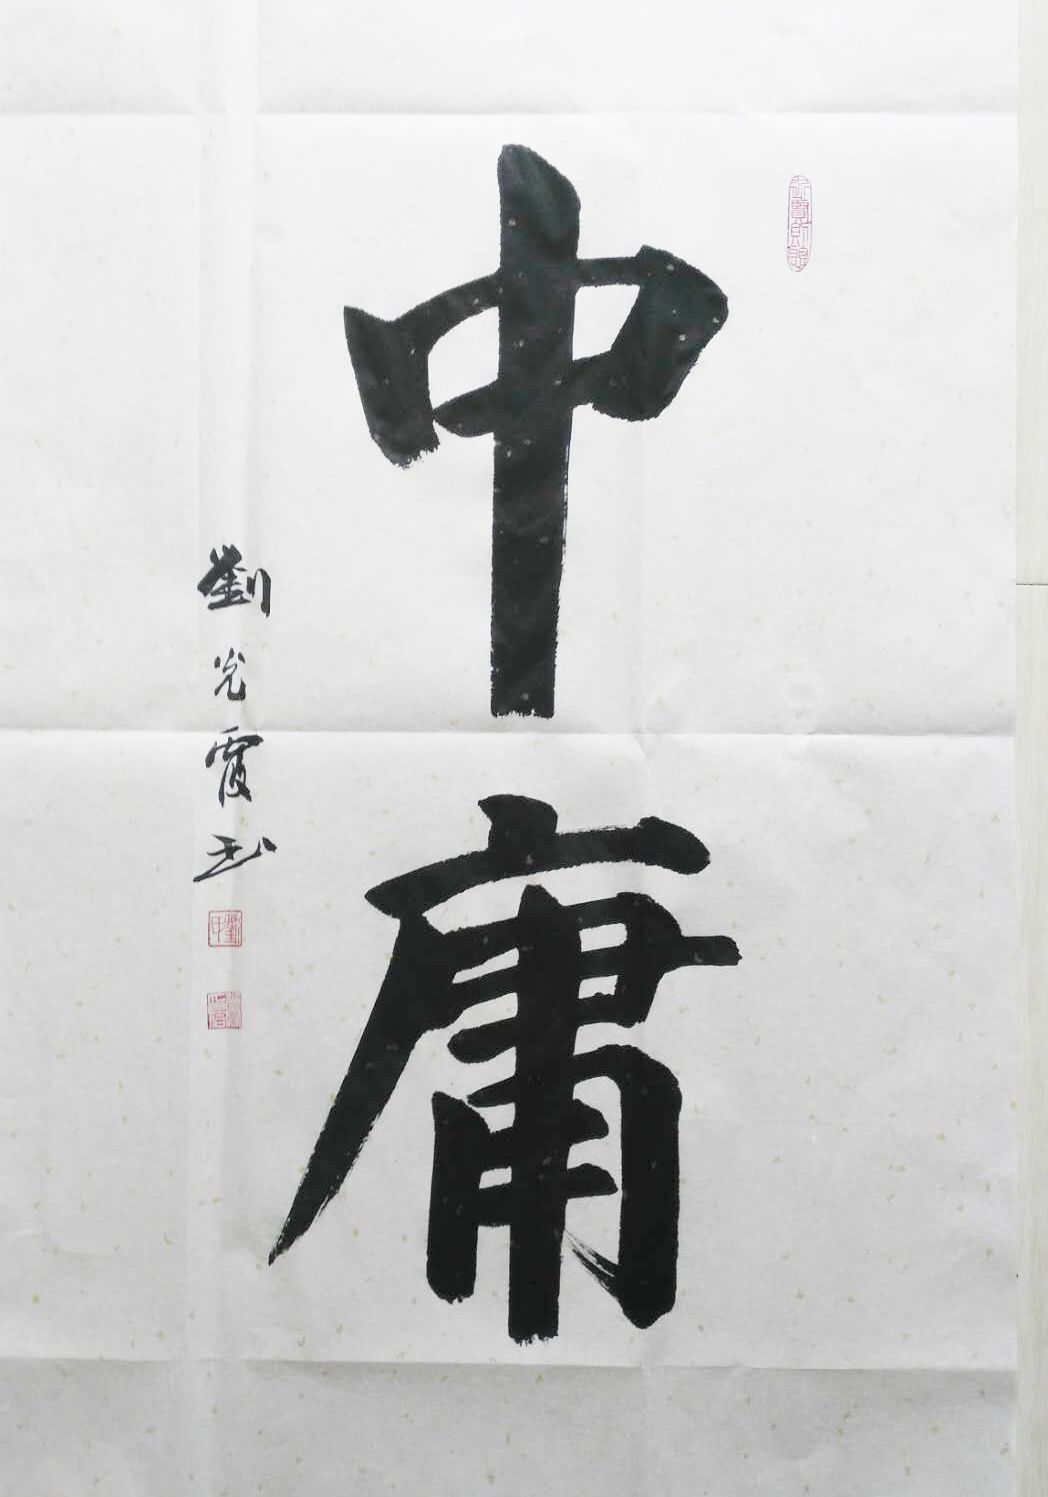 中庸
劉光霞书